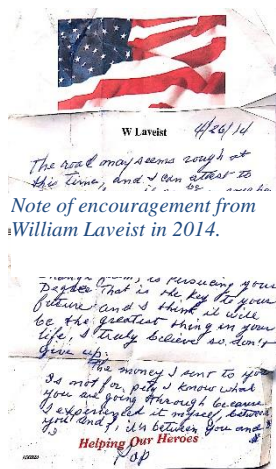 W Laveist 4/26/14
The road may seems rough at
this time, and I can attest to
Note of encouragement from
William Laveist in 2014.
is pursuing your
Degree That is the key to your
future and I think it will
be the greatest thing in your
life, I truly believe so, don't
Give up.
The money I sent to you
Is not for pity I know what
you are going through because
I experienced it myself, between
you and I, its between you and
Helping Our Heroes
Pop